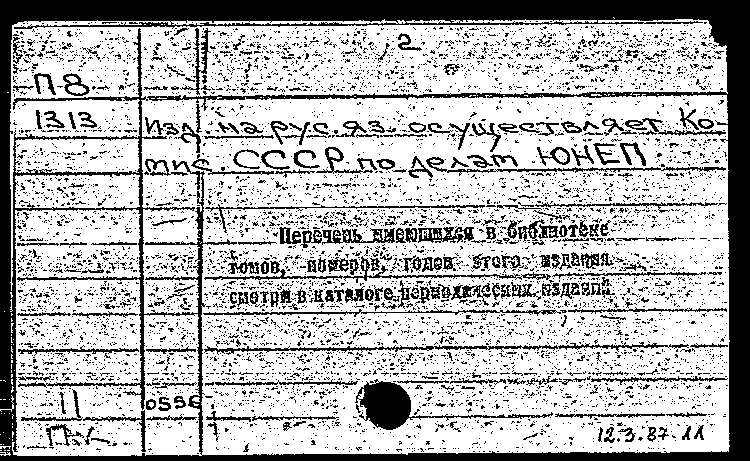 2
П8
1313
Изд. на рус. яз. осуществляет Ко-
мис. СССР по делам ЮНЕП.
Перечень имеющихся в библиотеке
томов, номеров, годов этого издания
смотри в каталоге периодических изданий
11 0556
12.3.87. 11